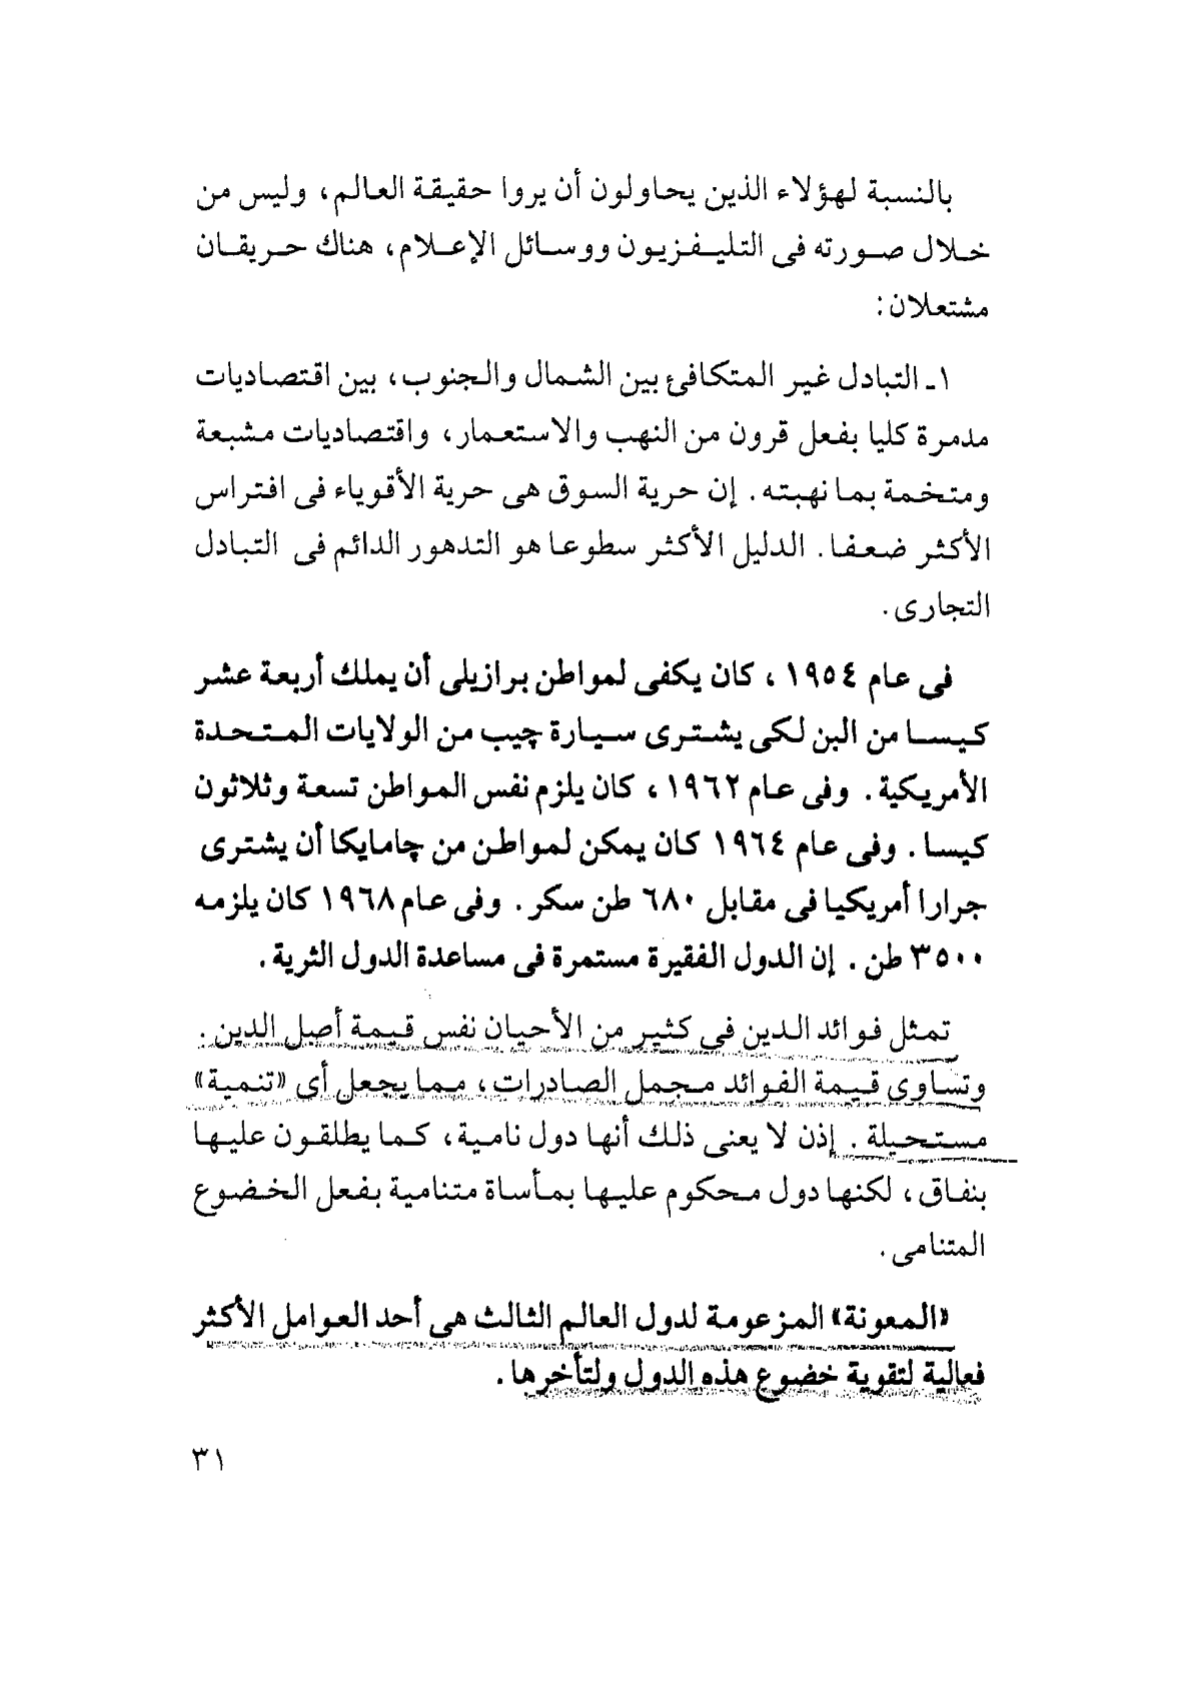 بالنسبة لهؤلاء الذين يحاولون أن يروا حقيقة العالم، وليس من
خلال صورته فى التليفزيون ووسائل الإعلام، هناك حريقان
مشتعلان:
١ـ التبادل غير المتكافئ بين الشمال والجنوب، بين اقتصاديات
مدمرة كليا بفعل قرون من النهب والاستعمار، واقتصاديات مشبعة
ومتخمة بما نهبته. إن حرية السوق هى حرية الأقوياء فى افتراس
الأكثر ضعفا. الدليل الأكثر سطوعا هو التدهور الدائم فى التبادل
التجارى.
فى عام ١٩٥٤ ، كان يكفى لمواطن برازيلى أن يملك أربعة عشر
كيسا من البن لكى يشترى سيارة چيب من الولايات المتحدة
الأمريكية. وفى عام ١٩٦٢ ، كان يلزم نفس المواطن تسعة وثلاثون
كيسا. وفى عام ١٩٦٤ كان يمكن لمواطن من چامايكا أن يشترى
جرارا أمريكيا فى مقابل ٦٨٠ طن سكر. وفى عام ١٩٦٨ كان يلزمه
٣٥٠٠ طن. إن الدول الفقيرة مستمرة فى مساعدة الدول الثرية.
تمثل فوائد الدين فى كثير من الأحيان نفس قيمة أصل الدين.
وتساوى قيمة الفوائد مجمل الصادرات، مما يجعل أى «تنمية»
مستحيلة. إذن لا يعنى ذلك أنها دول نامية، كما يطلقون عليها
بنفاق، لكنها دول محكوم عليها بمأساة متنامية بفعل الخضوع
المتنامى.
«المعونة» المزعومة لدول العالم الثالث هى أحد العوامل الأكثر
فعالية لتقوية خضوع هذه الدول ولتأخرها.
٣١